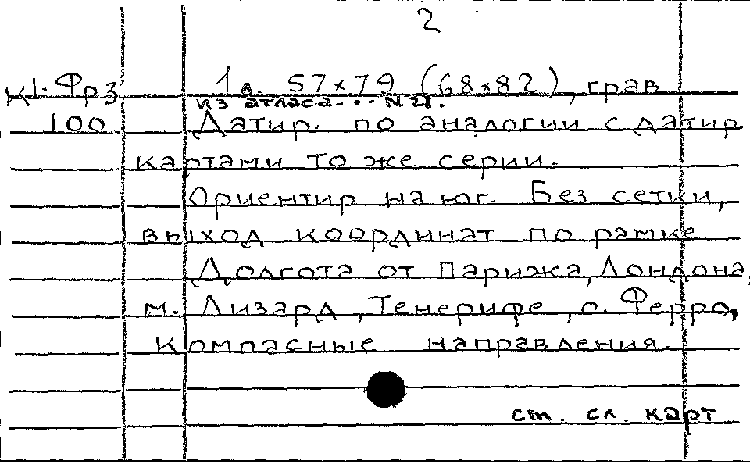 2
К1-Фрз 1 л. 57×79 (68×82), грав
из атласа... N II.
100 Датир. по аналогии с датир
картами то же серии.
Ориентир на юг. Без сетки,
выход координат по рамке
Долгота от Парижа, Лондона,
м. Лизард, Тенерифе, о. Ферро,
Компасные направления.
см. сл. карт